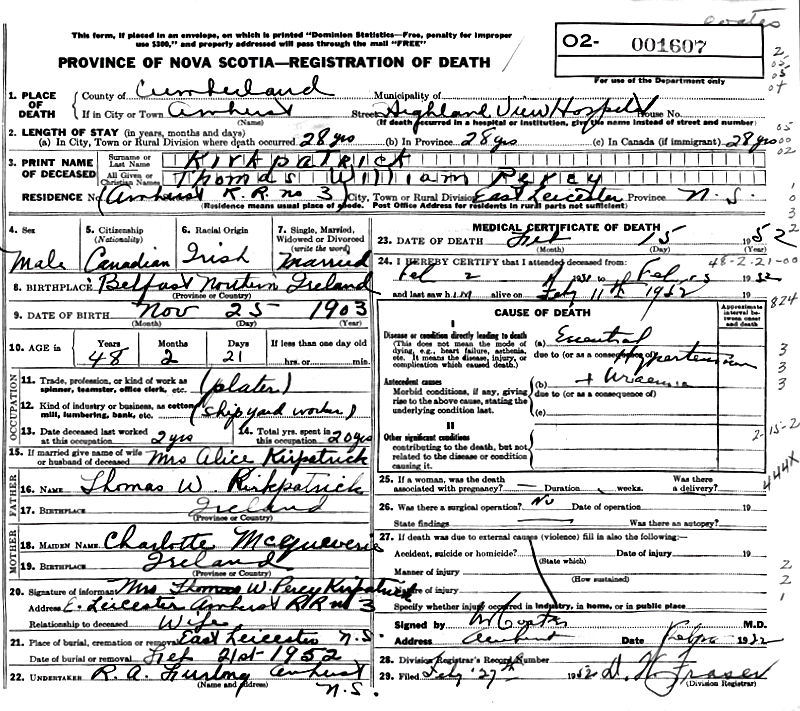 coates
This form, if placed in an envelope, on which is printed "Dominion Statistics—Free, penalty for improper
use $300," and properly addressed will pass through the mail "FREE"
PROVINCE OF NOVA SCOTIA—REGISTRATION OF DEATH
O2- 001607
For use of the Department only
1. PLACE OF DEATH County of Cumberland Municipality of
If in City or Town Amherst Street Highland View Hospital House No.
(Name) (If death occurred in a hospital or institution, give the name instead of street and number)
2. LENGTH OF STAY (in years, months and days)
(a) In City, Town or Rural Division where death occurred 28 yrs (b) In Province 28 yrs (c) In Canada (if immigrant) 28 yrs
3. PRINT NAME OF DECEASED Surname or Last Name Kirkpatrick
All Given or Christian Names Thomas William Percy
RESIDENCE No. (Amherst R.R. no 3) City, Town or Rural Division East Leicester Province N.S.
(Residence means usual place of abode. Post Office Address for residents in rural parts not sufficient)
4. Sex Male
5. Citizenship (Nationality) Canadian
6. Racial Origin Irish
7. Single, Married, Widowed or Divorced (write the word) Married
8. BIRTHPLACE Belfast Northern Ireland
(Province or Country)
9. DATE OF BIRTH Nov 25 1903
(Month) (Day) (Year)
10. AGE in Years 48 Months 2 Days 21 If less than one day old
hrs. or min.
OCCUPATION
11. Trade, profession, or kind of work as spinner, teamster, office clerk, etc. (plater)
12. Kind of industry or business, as cotton mill, lumbering, bank, etc. (ship yard worker)
13. Date deceased last worked at this occupation 2 yrs 14. Total yrs. spent in this occupation 20 yrs
15. If married give name of wife or husband of deceased Mrs Alice Kirkpatrick
FATHER
16. NAME Thomas W. Kirkpatrick
17. BIRTHPLACE Ireland
(Province or Country)
MOTHER
18. MAIDEN NAME Charlotte
19. BIRTHPLACE Ireland
(Province or Country)
20. Signature of informant Mrs Thomas W. Percy Kirkpatrick
Address E. Leicester Amherst R R no 3
Relationship to deceased Wife
21. Place of burial, cremation or removal East Leicester N.S.
Date of burial or removal Feb 21st 1952
22. UNDERTAKER R. A. Furlong Amherst
(Name and address) N.S.
MEDICAL CERTIFICATE OF DEATH
23. DATE OF DEATH Feb 15 1952
(Month) (Day)
48-2-21-00
24. I HEREBY CERTIFY that I attended deceased from:
Feb 2 to Feb 15 1952
and last saw him alive on Feb 11th 1952
CAUSE OF DEATH
Approximate interval between onset and death
I
Disease or condition directly leading to death
(This does not mean the mode of dying, e.g., heart failure, asthenia, etc. It means the disease, injury, or complication which caused death.)
(a) Essential Hypertension
due to (or as a consequence of)
Antecedent causes
Morbid conditions, if any, giving rise to the above cause, stating the underlying condition last.
(b) + Uraemia
due to (or as a consequence of)
(c)
II
Other significant conditions
contributing to the death, but not related to the disease or condition causing it.
25. If a woman, was the death associated with pregnancy? — Duration weeks. Was there a delivery?
26. Was there a surgical operation? No Date of operation 19
State findings — Was there an autopsy?
27. If death was due to external causes (violence) fill in also the following:—
Accident, suicide or homicide? Date of injury 19
(State which)
Manner of injury
(How sustained)
Nature of injury
Specify whether injury occurred in industry, in home, or in public place
Signed by Coates M.D.
Address Amherst Date 1952
28. Division Registrar's Record Number
29. Filed Feb 27th 1952 Fraser
(Division Registrar)
824
3
3
3
2-15-2
444X
2
2
1